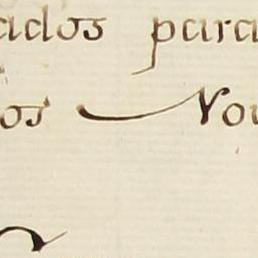 ados para
os Nou